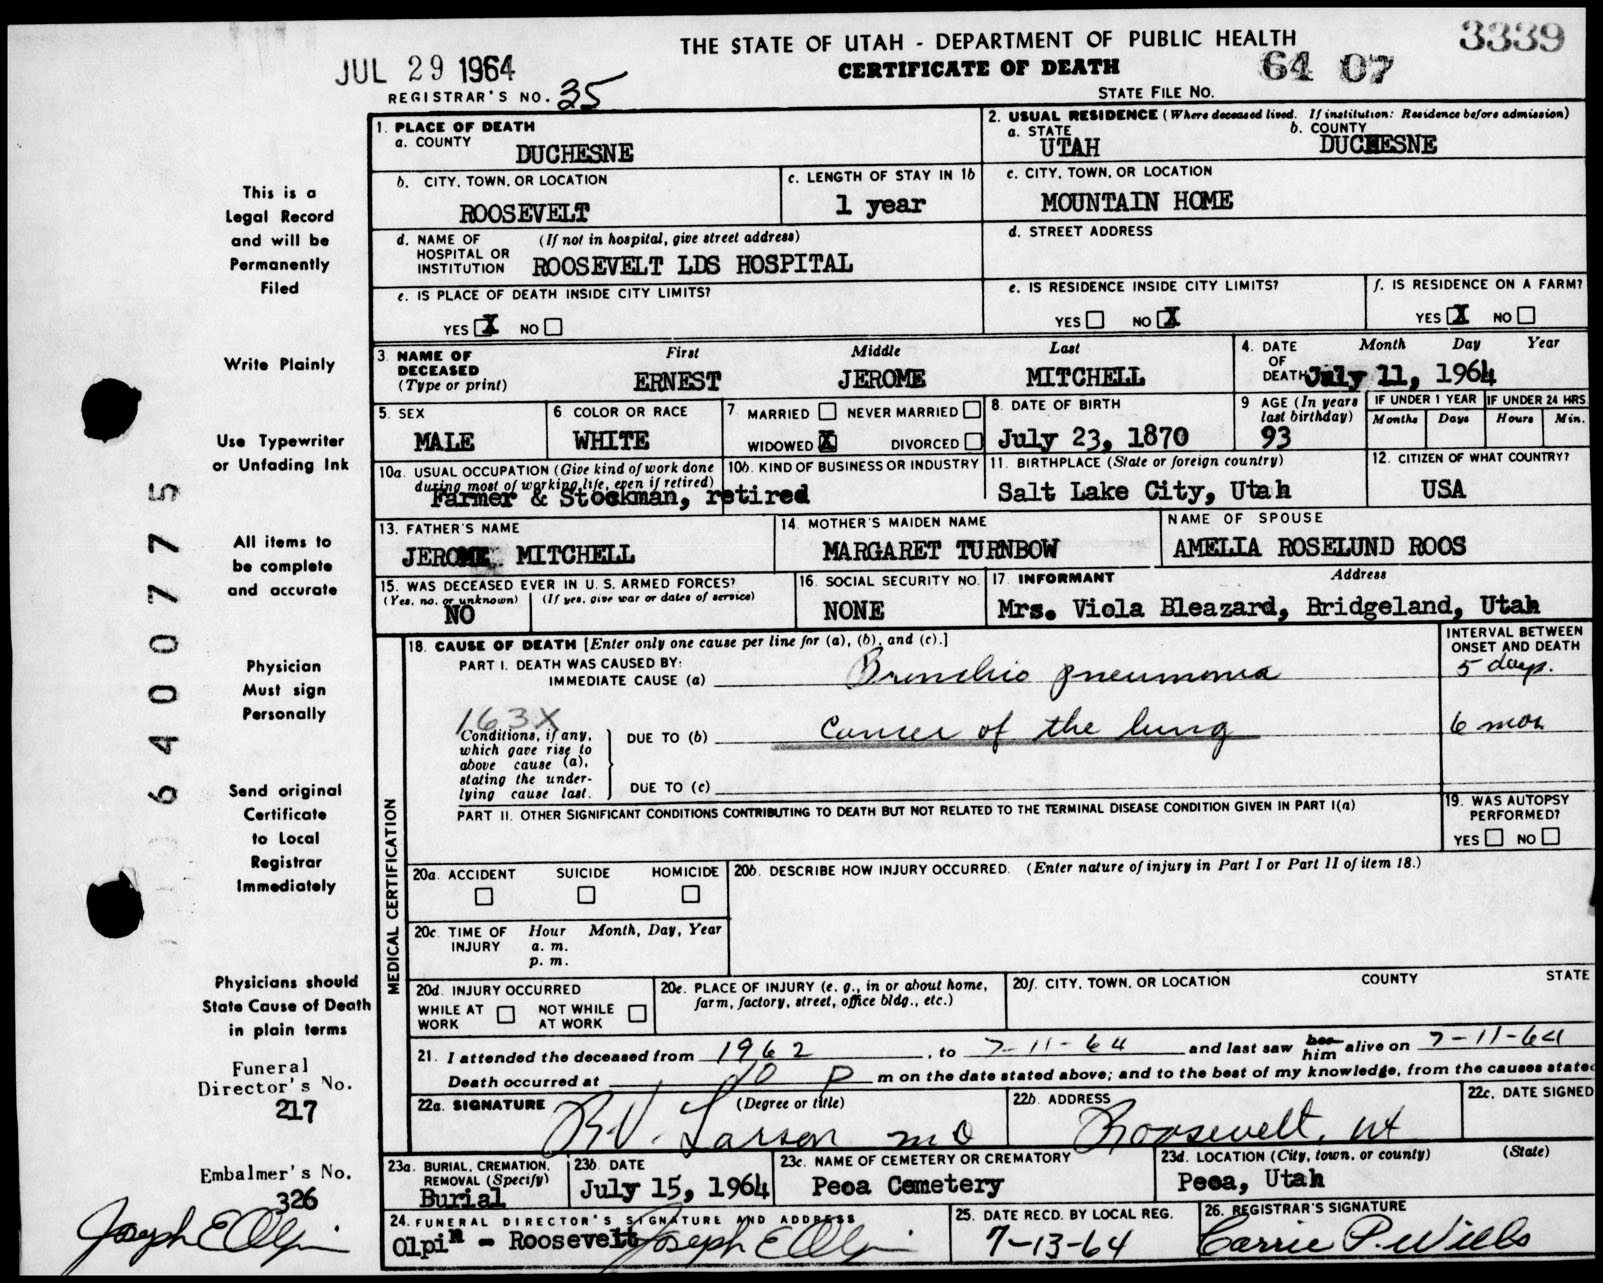 THE STATE OF UTAH - DEPARTMENT OF PUBLIC HEALTH
3339
JUL 29 1964
CERTIFICATE OF DEATH
64 07
REGISTRAR'S NO. 35
STATE FILE NO.
1. PLACE OF DEATH
a. COUNTY
DUCHESNE
2. USUAL RESIDENCE (Where deceased lived. If institution: Residence before admission)
a. STATE
UTAH
b. COUNTY
DUCHESNE
b. CITY, TOWN, OR LOCATION
ROOSEVELT
c. LENGTH OF STAY IN 1b
1 year
c. CITY, TOWN, OR LOCATION
MOUNTAIN HOME
d. NAME OF HOSPITAL OR INSTITUTION
(If not in hospital, give street address)
ROOSEVELT LDS HOSPITAL
d. STREET ADDRESS
e. IS PLACE OF DEATH INSIDE CITY LIMITS?
YES X NO
e. IS RESIDENCE INSIDE CITY LIMITS?
YES NO X
f. IS RESIDENCE ON A FARM?
YES X NO
3. NAME OF DECEASED
(Type or print)
First Middle Last
ERNEST JEROME MITCHELL
4. DATE OF DEATH
Month Day Year
July 11, 1964
5. SEX
MALE
6 COLOR OR RACE
WHITE
7 MARRIED NEVER MARRIED
WIDOWED X DIVORCED
8. DATE OF BIRTH
July 23, 1870
9 AGE (In years last birthday)
93
IF UNDER 1 YEAR
Months Days
IF UNDER 24 HRS.
Hours Min.
10a. USUAL OCCUPATION (Give kind of work done during most of working life, even if retired)
Farmer & Stockman, retired
10b. KIND OF BUSINESS OR INDUSTRY
11. BIRTHPLACE (State or foreign country)
Salt Lake City, Utah
12. CITIZEN OF WHAT COUNTRY?
USA
13. FATHER'S NAME
JEROME MITCHELL
14. MOTHER'S MAIDEN NAME
MARGARET TURNBOW
NAME OF SPOUSE
AMELIA ROSELUND ROOS
15. WAS DECEASED EVER IN U. S. ARMED FORCES?
(Yes, no, or unknown)
NO
(If yes, give war or dates of service)
16. SOCIAL SECURITY NO.
NONE
17. INFORMANT Address
Mrs. Viola Bleazard, Bridgeland, Utah
MEDICAL CERTIFICATION
18. CAUSE OF DEATH [Enter only one cause per line for (a), (b), and (c).]
INTERVAL BETWEEN ONSET AND DEATH
PART I. DEATH WAS CAUSED BY:
IMMEDIATE CAUSE (a) Bronchio pneumonia
5 days.
163X
Conditions, if any, which gave rise to above cause (a), stating the underlying cause last.
DUE TO (b) Cancer of the lung
6 mos
DUE TO (c)
PART II. OTHER SIGNIFICANT CONDITIONS CONTRIBUTING TO DEATH BUT NOT RELATED TO THE TERMINAL DISEASE CONDITION GIVEN IN PART I(a)
19. WAS AUTOPSY PERFORMED?
YES NO
20a. ACCIDENT SUICIDE HOMICIDE
20b. DESCRIBE HOW INJURY OCCURRED. (Enter nature of injury in Part I or Part II of item 18.)
20c. TIME OF INJURY
Hour Month, Day, Year
a. m.
p. m.
20d. INJURY OCCURRED
WHILE AT WORK
NOT WHILE AT WORK
20e. PLACE OF INJURY (e. g., in or about home, farm, factory, street, office bldg., etc.)
20f. CITY, TOWN, OR LOCATION COUNTY STATE
21. I attended the deceased from 1962, to 7-11-64 and last saw her him alive on 7-11-64
Death occurred at 10 P m on the date stated above; and to the best of my knowledge, from the causes stated
22a. SIGNATURE (Degree or title)
R.V. Larson MD
22b. ADDRESS
Roosevelt, Ut
22c. DATE SIGNED
23a. BURIAL, CREMATION, REMOVAL (Specify)
Burial
23b. DATE
July 15, 1964
23c. NAME OF CEMETERY OR CREMATORY
Peoa Cemetery
23d. LOCATION (City, town, or county) (State)
Peoa, Utah
24. FUNERAL DIRECTOR'S SIGNATURE AND ADDRESS
Olpin - Roosevelt Joseph E Olpin
25. DATE RECD. BY LOCAL REG.
7-13-64
26. REGISTRAR'S SIGNATURE
Carrie P. Wilbs
This is a
Legal Record
and will be
Permanently
Filed
Write Plainly
Use Typewriter
or Unfading Ink
All items to
be complete
and accurate
Physician
Must sign
Personally
Send original
Certificate
to Local
Registrar
Immediately
Physicians should
State Cause of Death
in plain terms
Funeral
Director's No.
217
Embalmer's No.
326
Joseph E Olpin
6400775